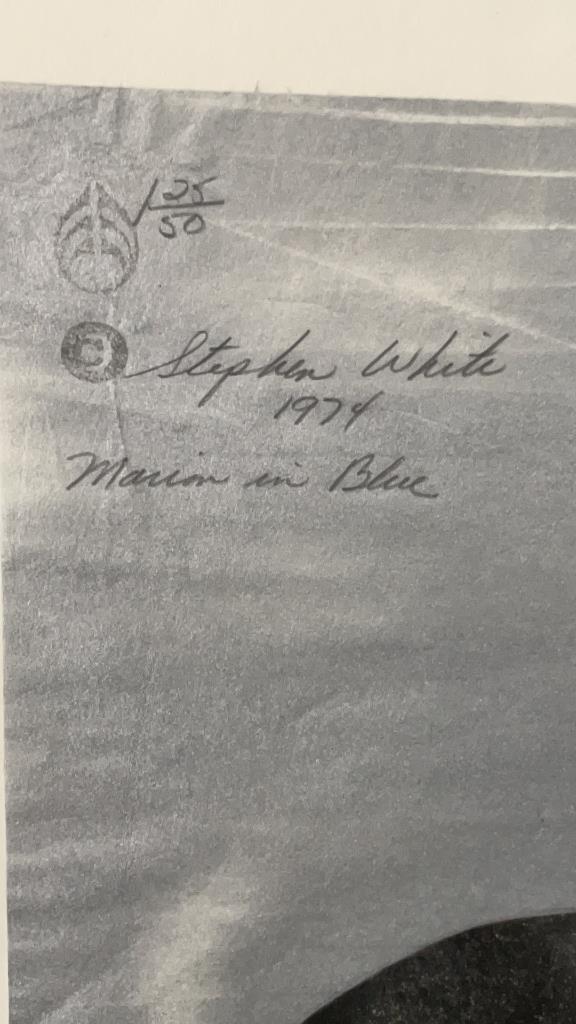 25/50
© Stephen White
1974
Marion in Blue